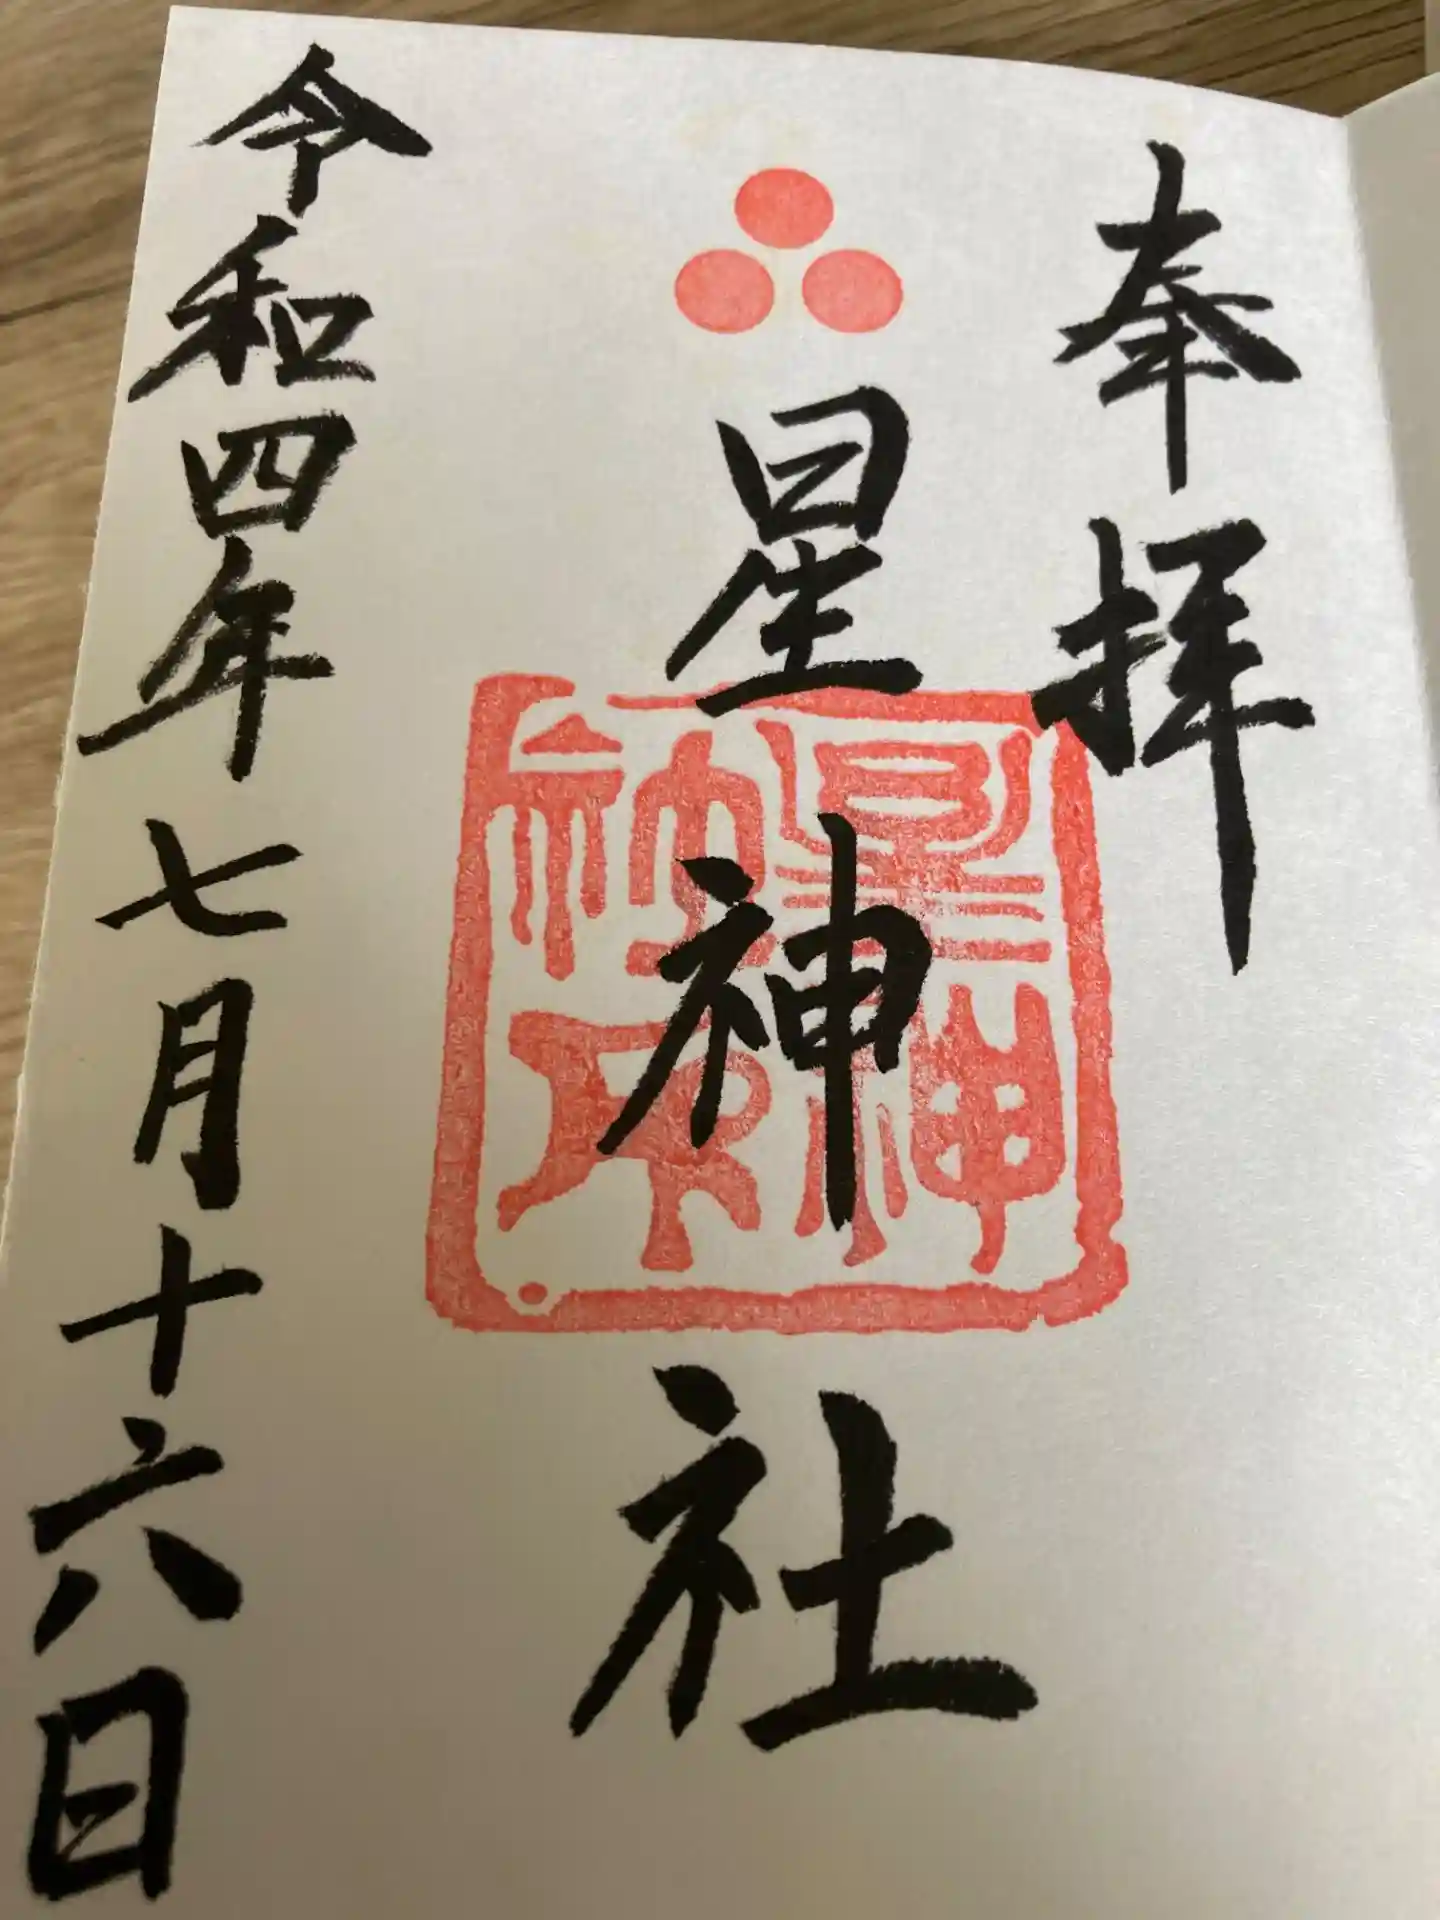 奉拝
星神社
星神
社印
令和四年七月十六日